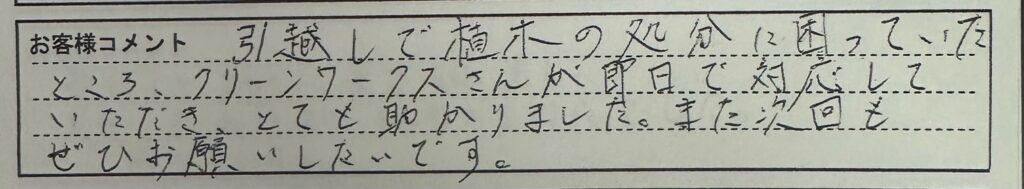 お客様コメント 引越しで植木の処分に困っていた
ところ、クリーンワークスさんが即日で対応して
いただき、とても助かりました。また次回も
ぜひお願いしたいです。